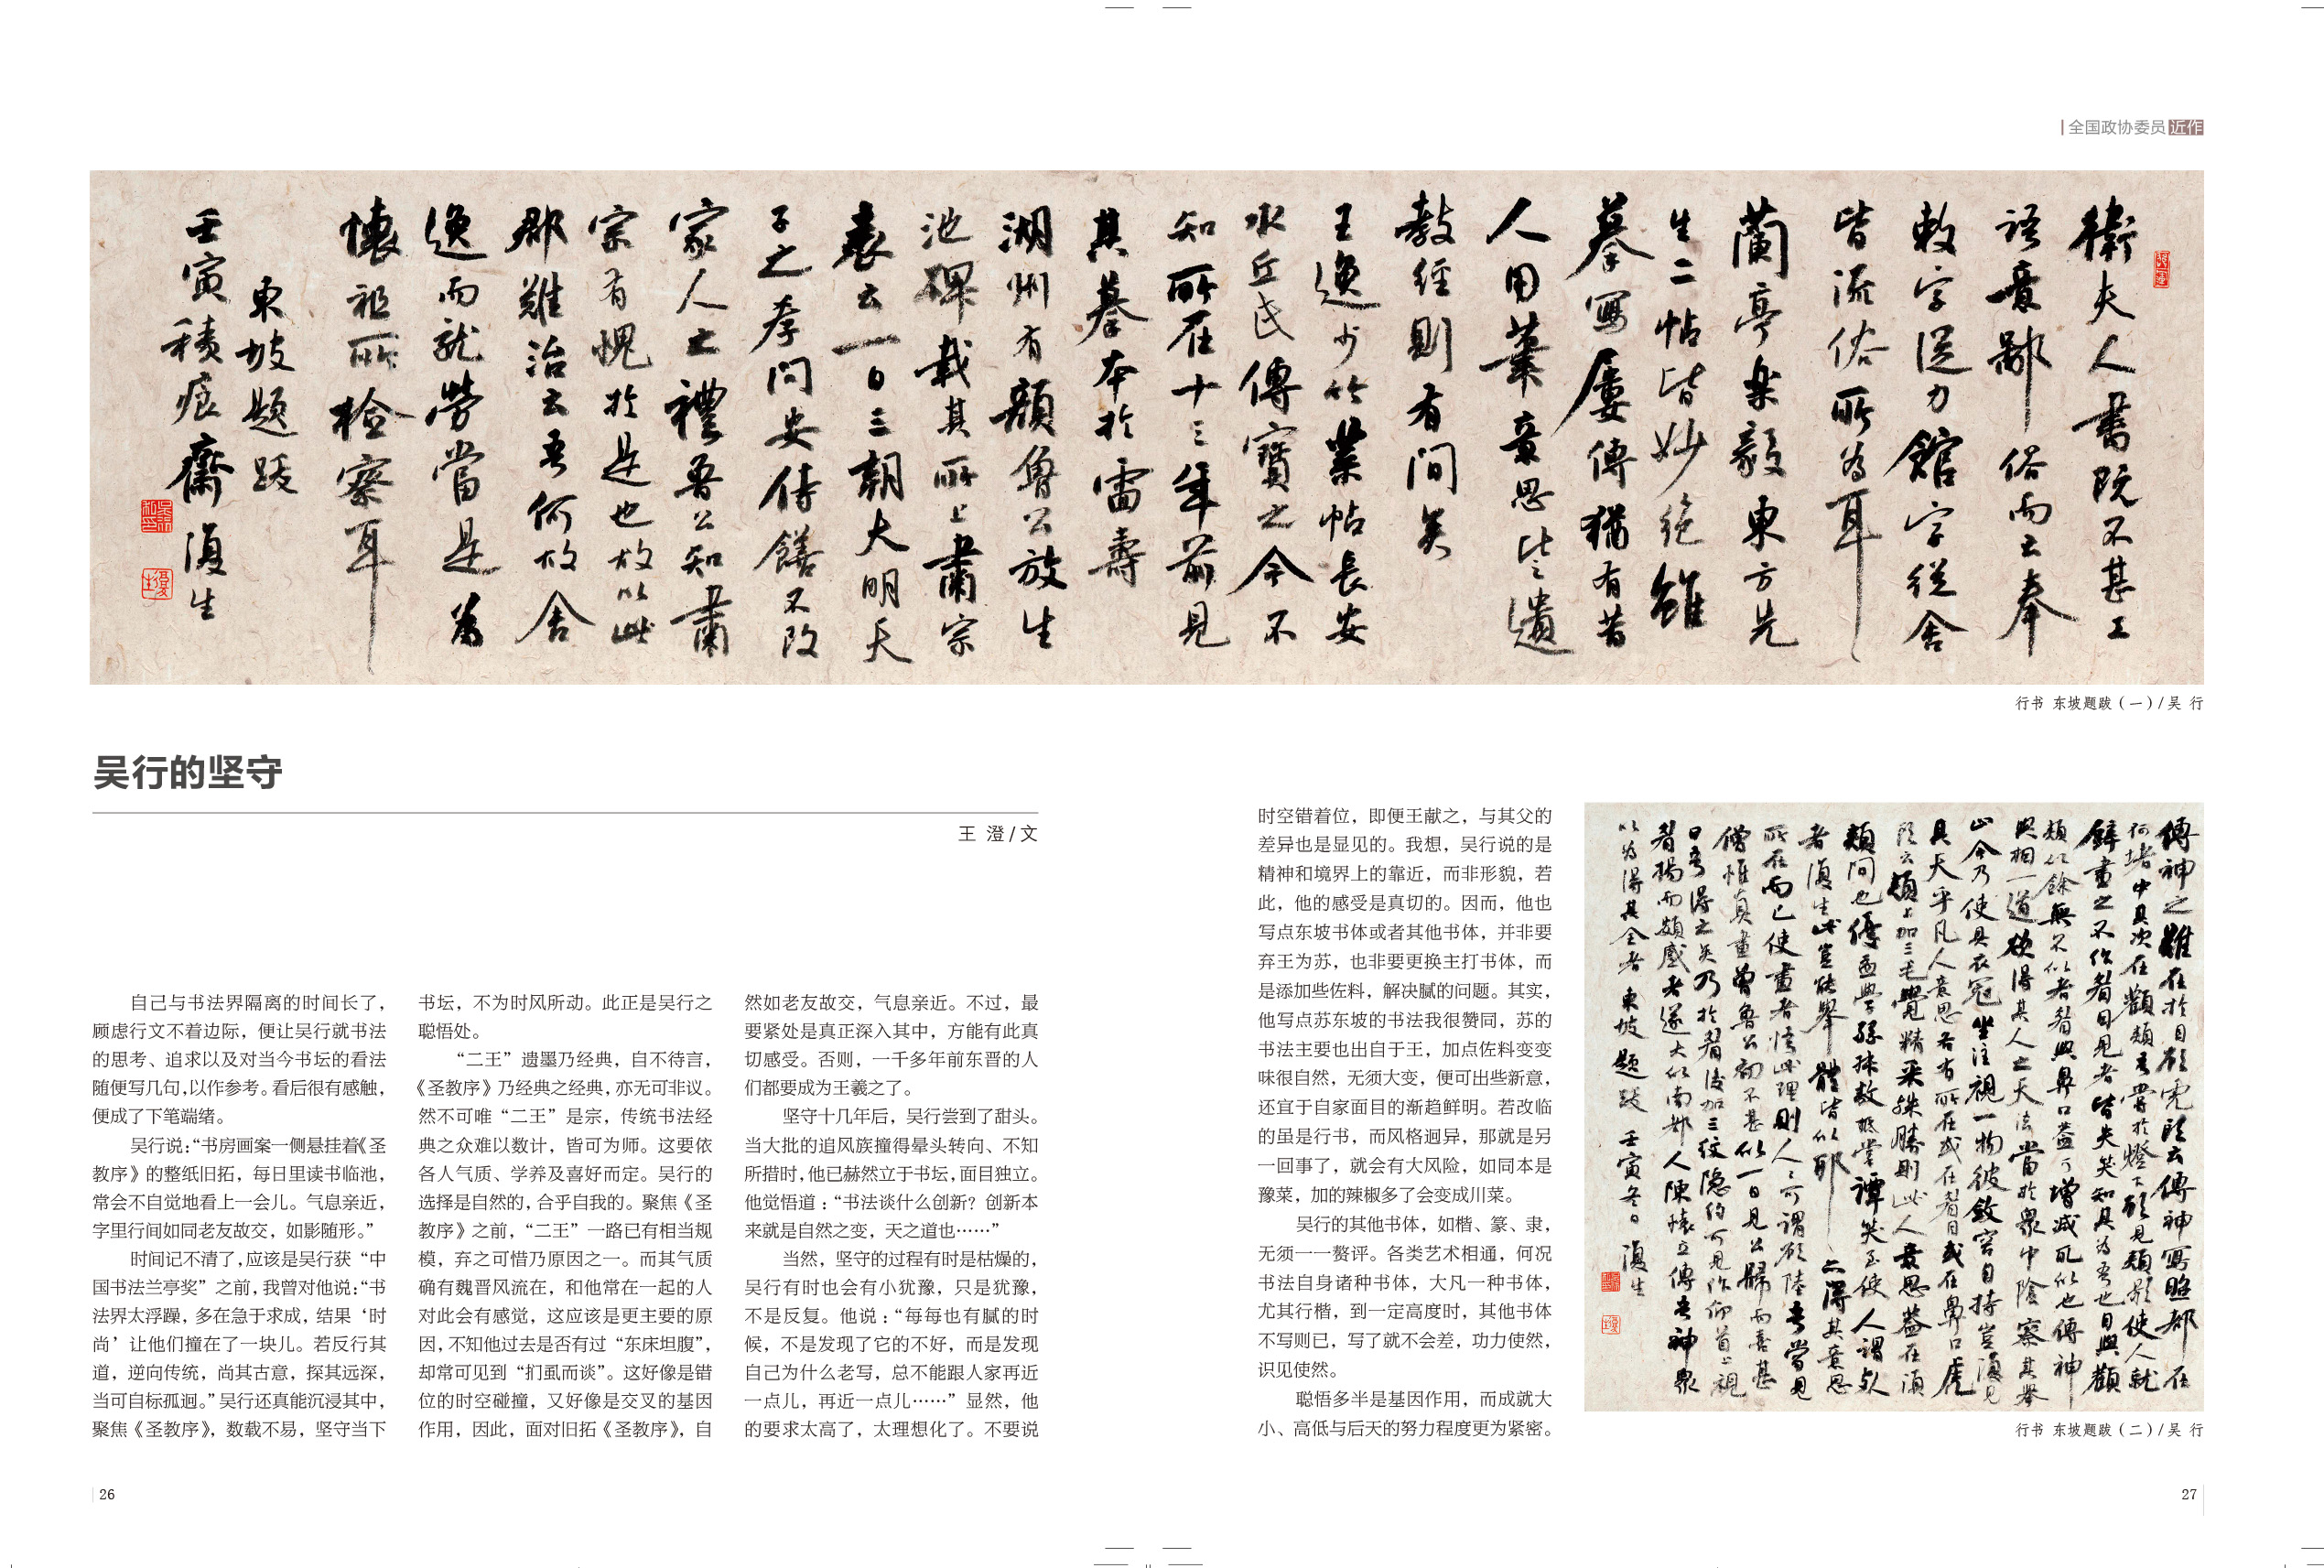 全国政协委员 近作
衛夫人書既不甚工
語意鄙俗而云奉
敕字從力館字從舍
皆流俗所為耳
蘭亭樂毅東方先
生二帖皆妙絕雖
摹寫屢傳猶有昔
人用筆意思比之遺
教經則有間矣
王逸少竹葉帖長安
水丘氏傳寶之今不
知所在十三年前見
其摹本於雷壽
湖州有顏魯公放生
池碑載其所上肅宗
表云一日三朝大明天
子之孝問安侍膳不改
家人之禮魯公知肅
宗有愧於是也故以此
郡難治云吾何故舍
逸而就勞當是為
懷祖所檢察耳
東坡題跋
壬寅積痕齋復生
行书 东坡题跋（一）/吴 行
吴行的坚守
王 澄/文
自己与书法界隔离的时间长了，
顾虑行文不着边际，便让吴行就书法
的思考、追求以及对当今书坛的看法
随便写几句，以作参考。看后很有感触，
便成了下笔端绪。
吴行说：“书房画案一侧悬挂着《圣
教序》的整纸旧拓，每日里读书临池，
常会不自觉地看上一会儿。气息亲近，
字里行间如同老友故交，如影随形。”
时间记不清了，应该是吴行获“中
国书法兰亭奖”之前，我曾对他说：“书
法界太浮躁，多在急于求成，结果‘时
尚’让他们撞在了一块儿。若反行其
道，逆向传统，尚其古意，探其远深，
当可自标孤迥。”吴行还真能沉浸其中，
聚焦《圣教序》，数载不易，坚守当下
书坛，不为时风所动。此正是吴行之
聪悟处。
“二王”遗墨乃经典，自不待言，
《圣教序》乃经典之经典，亦无可非议。
然不可唯“二王”是宗，传统书法经
典之众难以数计，皆可为师。这要依
各人气质、学养及喜好而定。吴行的
选择是自然的，合乎自我的。聚焦《圣
教序》之前，“二王”一路已有相当规
模，弃之可惜乃原因之一。而其气质
确有魏晋风流在，和他常在一起的人
对此会有感觉，这应该是更主要的原
因，不知他过去是否有过“东床坦腹”，
却常可见到“扪虱而谈”。这好像是错
位的时空碰撞，又好像是交叉的基因
作用，因此，面对旧拓《圣教序》，自
然如老友故交，气息亲近。不过，最
要紧处是真正深入其中，方能有此真
切感受。否则，一千多年前东晋的人
们都要成为王羲之了。
坚守十几年后，吴行尝到了甜头。
当大批的追风族撞得晕头转向、不知
所措时，他已赫然立于书坛，面目独立。
他觉悟道：“书法谈什么创新？创新本
来就是自然之变，天之道也……”
当然，坚守的过程有时是枯燥的，
吴行有时也会有小犹豫，只是犹豫，
不是反复。他说：“每每也有腻的时
候，不是发现了它的不好，而是发现
自己为什么老写，总不能跟人家再近
一点儿，再近一点儿……”显然，他
的要求太高了，太理想化了。不要说
时空错着位，即便王献之，与其父的
差异也是显见的。我想，吴行说的是
精神和境界上的靠近，而非形貌，若
此，他的感受是真切的。因而，他也
写点东坡书体或者其他书体，并非要
弃王为苏，也非要更换主打书体，而
是添加些佐料，解决腻的问题。其实，
他写点苏东坡的书法我很赞同，苏的
书法主要也出自于王，加点佐料变变
味很自然，无须大变，便可出些新意，
还宜于自家面目的渐趋鲜明。若改临
的虽是行书，而风格迥异，那就是另
一回事了，就会有大风险，如同本是
豫菜，加的辣椒多了会变成川菜。
吴行的其他书体，如楷、篆、隶，
无须一一赘评。各类艺术相通，何况
书法自身诸种书体，大凡一种书体，
尤其行楷，到一定高度时，其他书体
不写则已，写了就不会差，功力使然，
识见使然。
聪悟多半是基因作用，而成就大
小、高低与后天的努力程度更为紧密。
傳神之難在於目顧虎頭云傳神寫照都在
阿堵中其次在顴頰吾嘗於燈下顧見頰影使人就
壁畫之不作眉目見者皆失笑知其為吾也目與顴
頰似餘無不似者眉與鼻口蓋可增減取似也傳神
與相一道欲得其人之天法當於眾中陰察其舉
止今乃使具衣冠坐注視一物彼斂容自持豈復見
其天乎凡人意思各有所在或在眉目或在鼻口虎
頭云頰上加三毛覺精采殊勝則此人意思蓋在須
頰間也優孟學孫叔敖抵掌譚笑至使人謂死
者復生此豈能舉體皆似耶亦得其意思
所在而已使畫者悟此理則人人可謂顧陸吾嘗見
僧惟真畫曾魯公初不甚似一日見公歸而喜甚
曰吾得之矣乃於眉後加三紋隱約可見作仰首上視
眉揚而頞蹙者遂大似南都人陳懷立傳吾神眾
以為得其全者 東坡題跋 壬寅冬日 復生
行书 东坡题跋（二）/吴 行
26
27